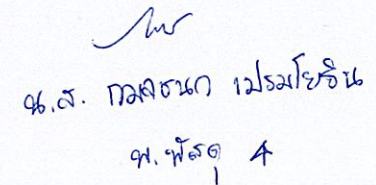 น.ส. กมลชนก เปรมโยธิน
พ.พัสดุ 4